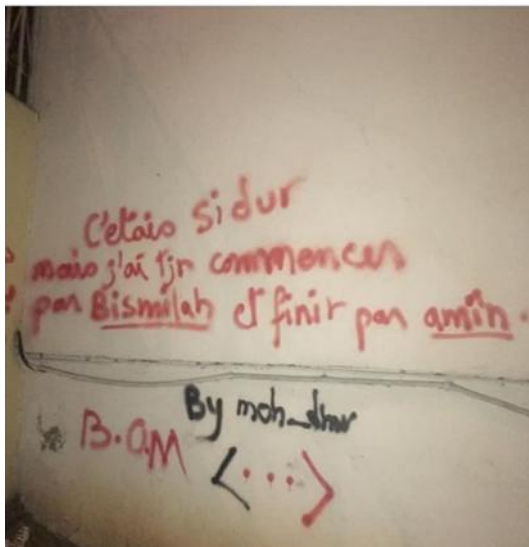 C'etais si dur
mais j'ai tjr commences
par Bismilah et finir par amin.
By moh_
B.O.M <...>